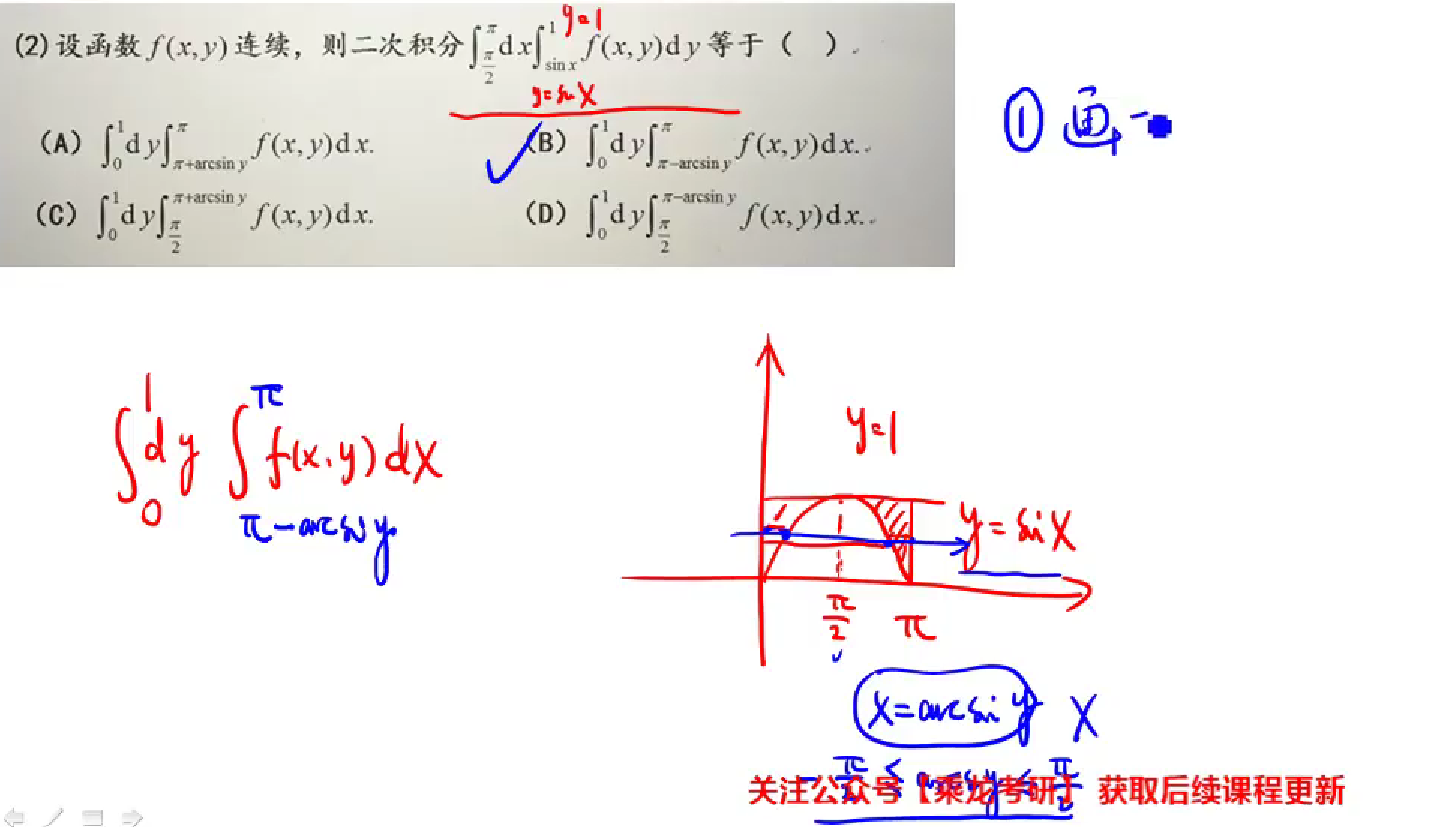 (2) 设函数 f(x,y) 连续，则二次积分 ∫_{π/2}^{π} dx ∫_{sin x}^{1} f(x,y)dy 等于（ ）.
y=1
y=sinX
(A) ∫_0^1 dy ∫_{π+arcsin y}^{π} f(x,y)dx.
(B) ∫_0^1 dy ∫_{π−arcsin y}^{π} f(x,y)dx.
(C) ∫_0^1 dy ∫_{π/2}^{π+arcsin y} f(x,y)dx.
(D) ∫_0^1 dy ∫_{π/2}^{π−arcsin y} f(x,y)dx.
① 画
∫_0^1 dy ∫_{π−arcsin y}^{π} f(x,y)dX
y=1
y=sinX
π/2
π
X=arcsin y X
-π/2 ≤ arcsin y ≤ π/2
关注公众号【乘龙考研】 获取后续课程更新